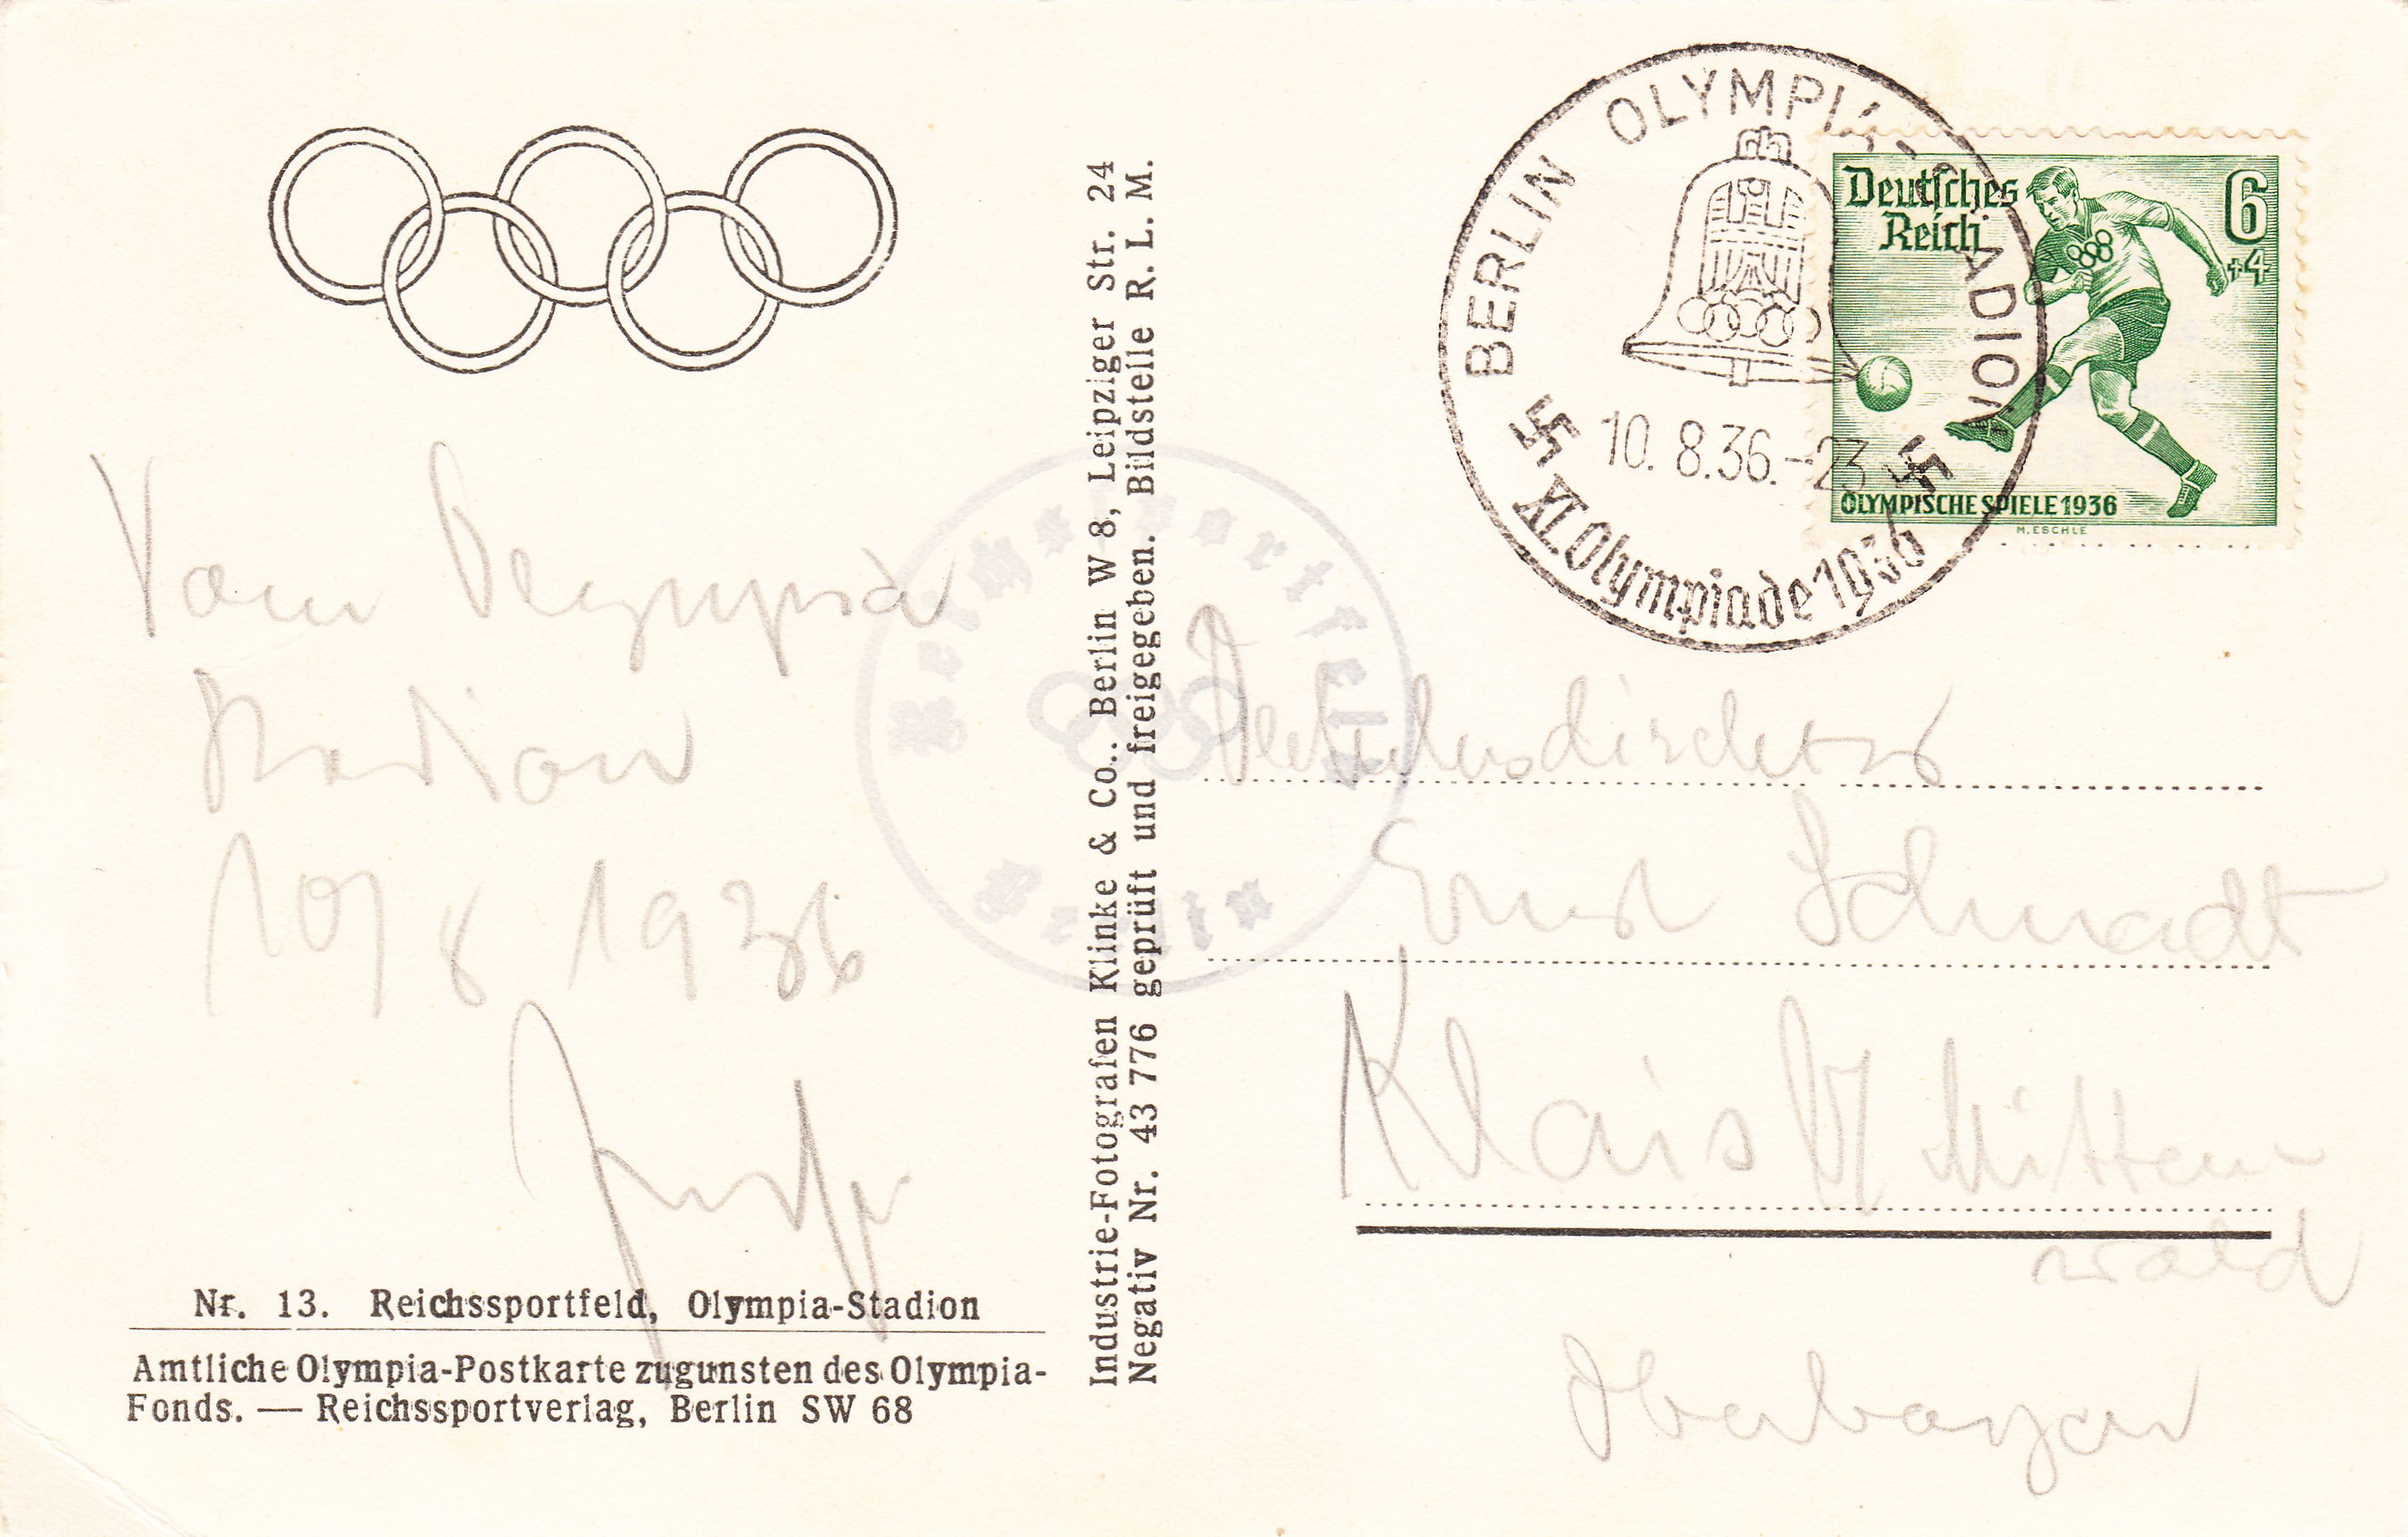 Vom Olympia
Stadion
10/8 1936
Nr. 13. Reichssportfeld, Olympia-Stadion
Amtliche Olympia-Postkarte zugunsten des Olympia-
Fonds. — Reichssportverlag, Berlin SW 68
Industrie-Fotografen Klinke & Co., Berlin W 8, Leipziger Str. 24
Negativ Nr. 43 776 geprüft und freigegeben. Bildstelle R. L. M.
Reichssportfeld
Berlin
BERLIN OLYMPIA-STADION
10. 8.36.-23
XI. Olympiade 1936
Deutsches
Reich
6
+4
OLYMPISCHE SPIELE 1936
M. ESCHLE
Ernst Schmadt
Klais b/ Mitten-
wald
Oberbayern